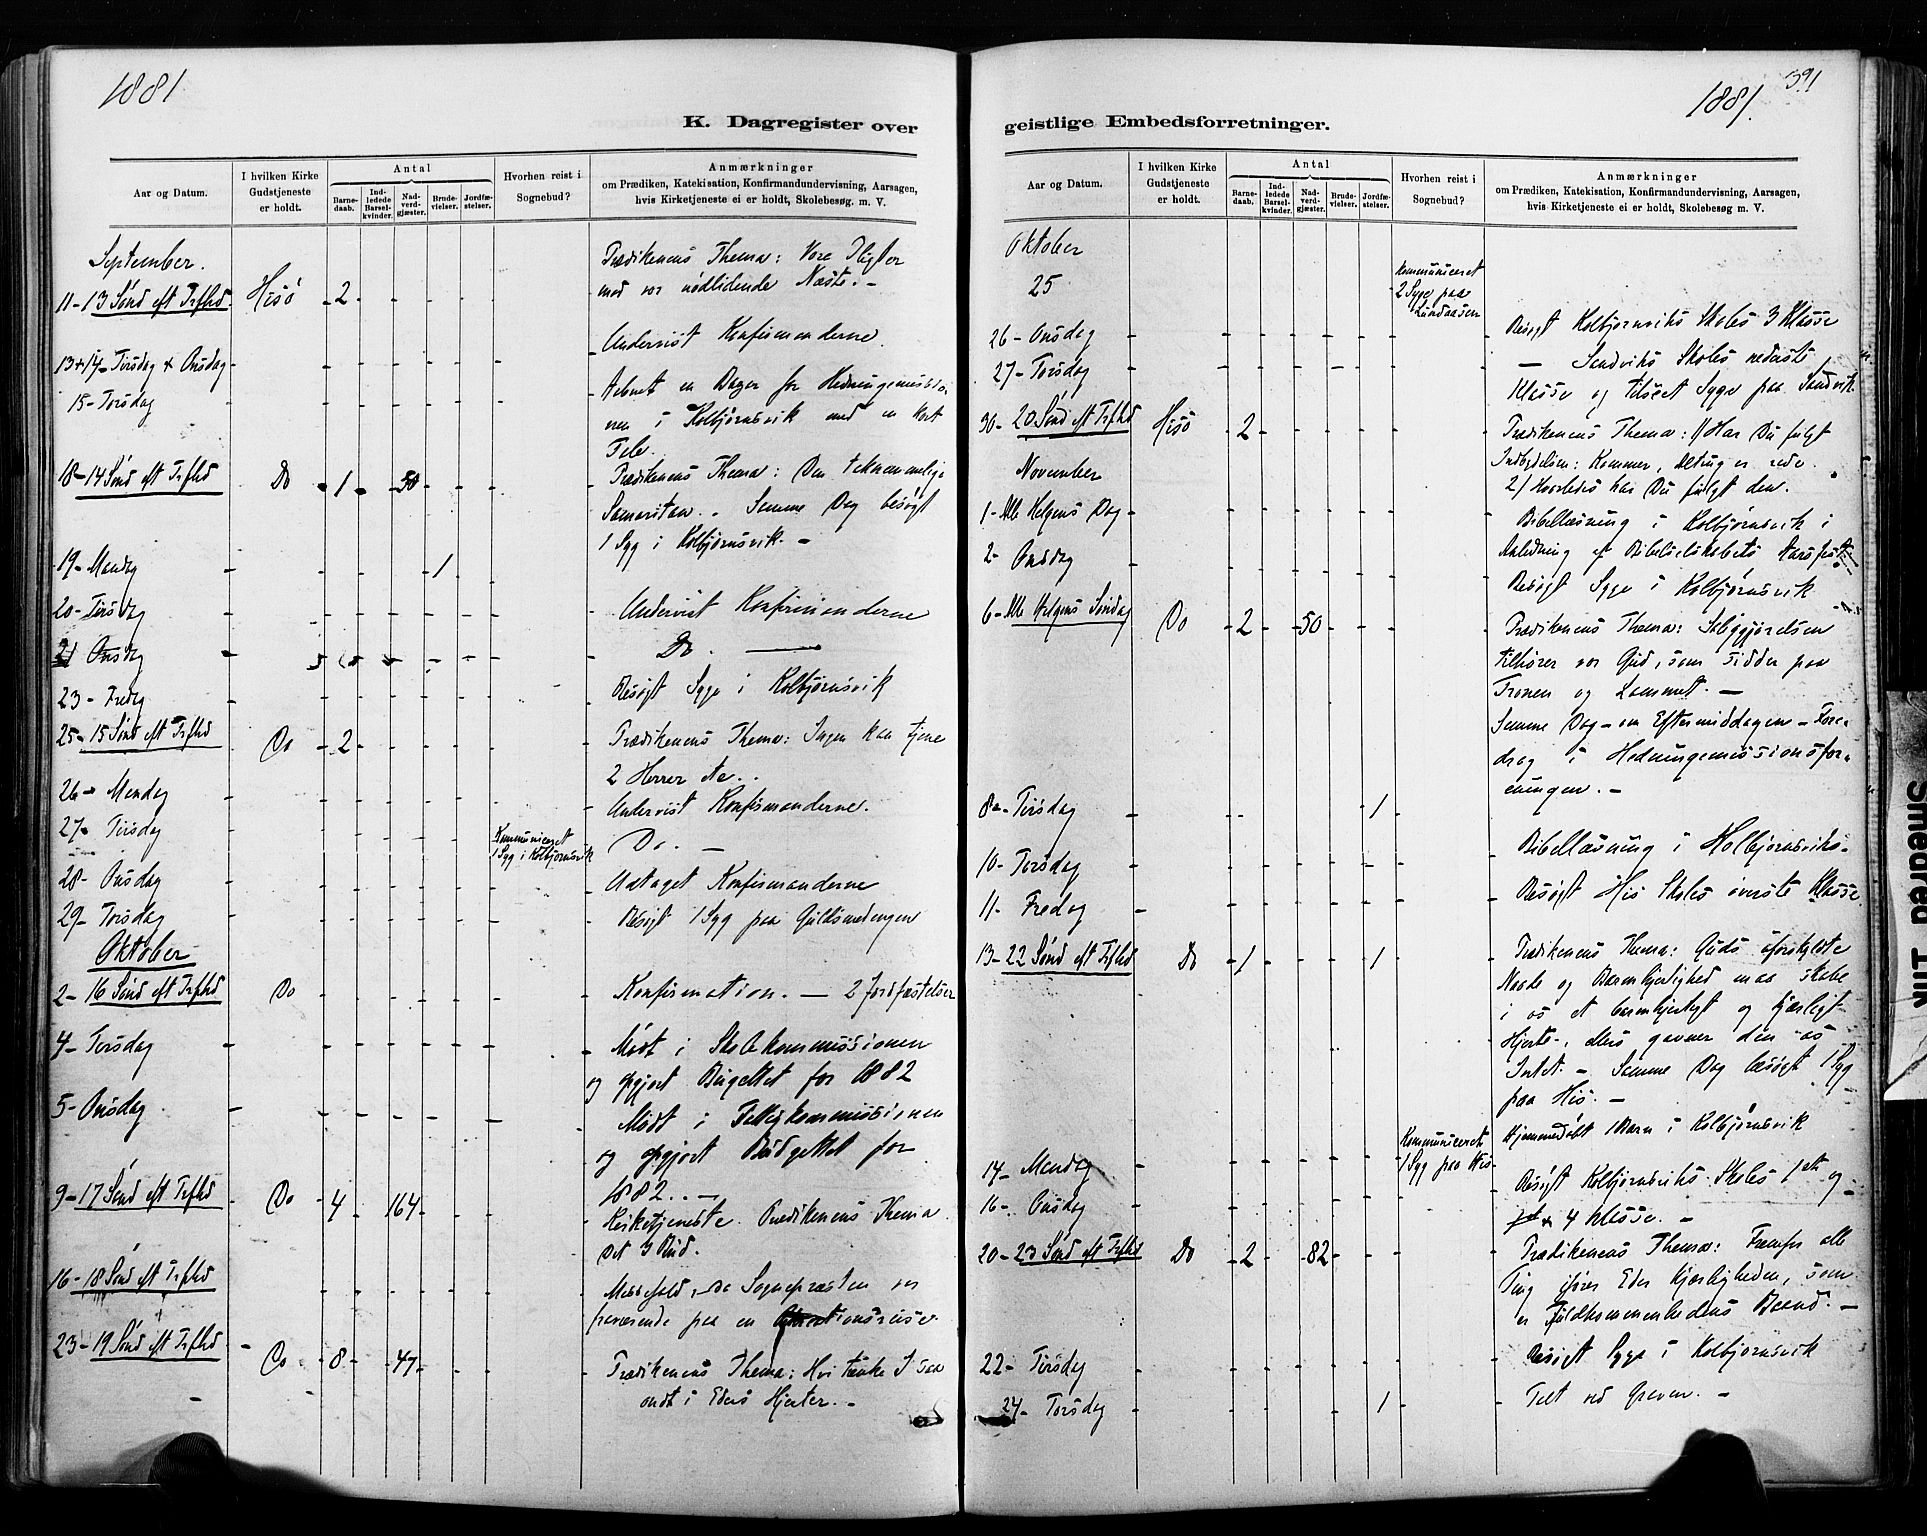 1881
K. Dagregister over
Aar og Datum.
I hvilken Kirke Gudstjeneste er holdt.
Antal
Barnedaab.
Indledede Barselkvinder.
Nadverdgjæster.
Brudevielser.
Jordfæstelser.
Hvorhen reist i Sognebud?
Anmærkninger
om Prædiken, Katekisation, Konfirmandundervisning, Aarsagen,
hvis Kirketjeneste ei er holdt, Skolebesøg m. V.
September.
Prædikenens Thema: Vore Pligter
11 - 13 Sønd eft Trfhd. Hisö - 2 - - - - med vor nödlidende Næste. -
13 + 14 - Tirsdag & Onsdag - Undervist Konfirmanderne.
15 - Torsdag
i Kolbjørnsvik med en kort
Tele.
18 - 14 Sønd eft Trfhd Do - 1 - 50 - - Prædikenens Thema: Den
Samaritan. Samme Dag besøgt
1 Syg i Kolbjørnsvik. -
19 - Mandag - - - - 1 -
20 - Tirsdag Undervist Konfirmanderne
21 Onsdag Do.
23 - Fredag Besøgt Syge i Kolbjørnsvik
25 - 15 Sønd eft Trfhd Do - 2 - - - - Prædikenens Thema: Ingen kan tjene
2 Herrer etc..
26 - Mandag Undervist Konfirmanderne.
27 - Tirsdag Kommuniceret 1 Syg i Kolbjørnsvik Do. -
28 - Onsdag Udtaget Konfirmanderne
29 - Torsdag Besøgt 1 Syg paa Guldsmedengen
Oktober
2 - 16 Sønd eft Trfhd Do Konfirmation. - 2 Jordfæstelser
4 - Torsdag Mödt i Skolekommissionen
og opgjort Bügettet for 1882
5 - Onsdag Mödt i Fattigkommissionen
og opgjort Büdgettet for
1882. . -
9 - 17 Sønd eft Trfhd Do 4 - 164 - - Kirketjeneste. Prædikenens Thema
Det 3 Bud.
16 - 18 Sønd eft Trfhd Messefald, da Sognepræsten var
fraværende paa en
23 - 19 Sønd eft Trfhd - Do - 8 - 47 - - Prædikenens Thema: Hvi tænke I saa
ondt i Eders Hjerter. -
391
1881.
geistlige Embedsforretninger.
Aar og Datum.
I hvilken Kirke Gudstjeneste er holdt.
Antal
Barnedaab.
Indledede Barselkvinder.
Nadverdgjæster.
Brudevielser.
Jordfæstelser.
Hvorhen reist i Sognebud?
Anmærkninger
om Prædiken, Katekisation, Konfirmandundervisning, Aarsagen,
hvis Kirketjeneste ei er holdt, Skolebesøg m. V.
Oktober
25 Kommuniceret 2 Syge paa
26 - Onsdag Besøgt Kolbjørnsviks Skoles 3 Klasse
27 - Torsdag - Sandviks Skoles nederste
Klasse og tilseet Syge paa Sandvik
30 - 20 Sønd eft Trfhd Hisö - 2 - - - - Prædikenens Thema: 1/ Har Du fulgt
Indbydelsen: Kommer, Alting er rede.
November 2/ Hvorledes har Du fulgt den.
1 - Alle Helgens Dag - Bibellæsning i Kolbjørnsvik i
Anledning af Bibelselskabets Aarsfest
2 - Onsdag Besøgt Syge i Kolbjørnsvik
6 - Alle Helgens Søndag Do - 2 - 50 - - Prædikenens Thema: Saliggjørelsen
tilhører vor Gud, som sidder paa
Tronen og Lammet. -
Samme Dag - om Eftermiddagene - Foredrag
i Hedningemissionsforeningen. -
8 - Tirsdag 1
10 - Torsdag Bibellæsning i Kolbjørnsvik.
11 - Fredag Besøgt His Skoles överste Klasse.
13 - 22 Sønd eft Trfhd Do - 1 - - - 1 Prædikenens Thema: Guds uforskyldte
Naade og Barmhjertighed maa skabe
i os et barmhjertigt og kjærligt
Hjerte, ellers gavner den os
Intet. - Samme Dag besøgt 1 Syg
paa His. -
Hjemmedöbt 1 Barn i Kolbjørnsvik
14 - Mandag Kommuniceret 1 Syg paa His
16 - Onsdag Besøgt Kolbjørnsviks Skoles 1ste og
& 4 Klasse. -
20 - 23 Sønd eft Trfhd Do - 2 - 82 - - Prædikenens Thema: Fremfor alle
Ting ifører Eder Kjærligheden, som
er Fuldkommenhedens Baand. -
22 - Tirsdag Besøgt Syge i Kolbjørnsvik
24 - Torsdag 1 Talt ved Graven. -